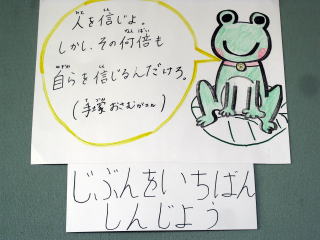 人を信じよ。
しかし、その何倍も
自らを信じるんだけろ。
(手塚おさむがエル)
じぶんをいちばん
しんじよう